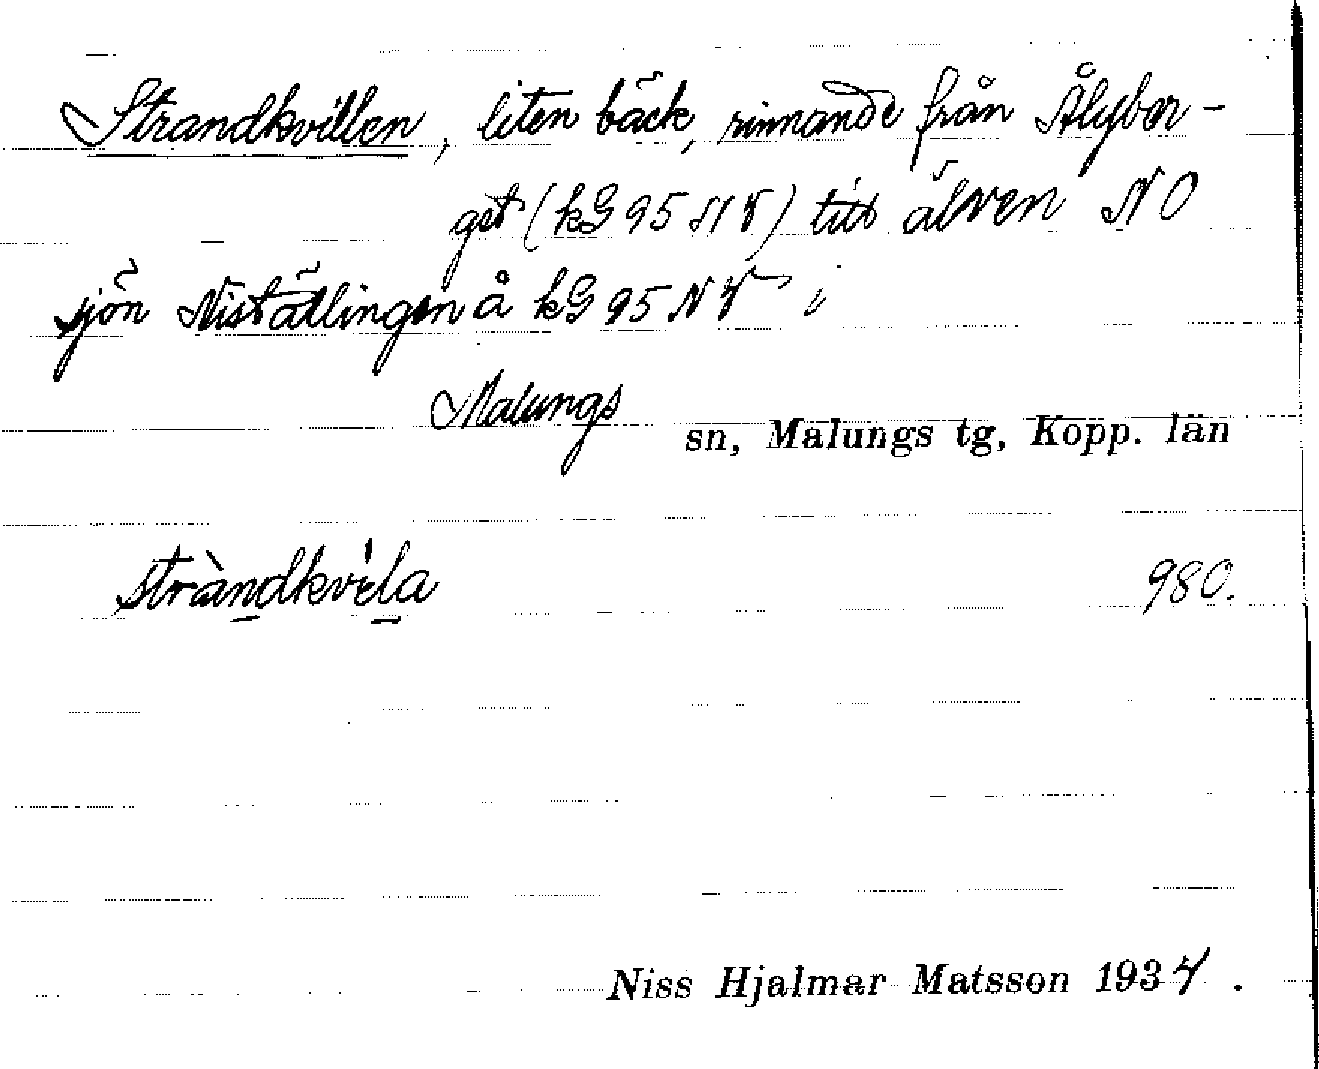 Strandkvillen, liten bäck, rinnande från Ålyber-
get (kG 95 NV) till älven NO
sjön Niställingen å kG 95 NV i
Malungs sn, Malungs tg, Kopp. län
stràndkvìla 980.
Niss Hjalmar Matsson 1934.